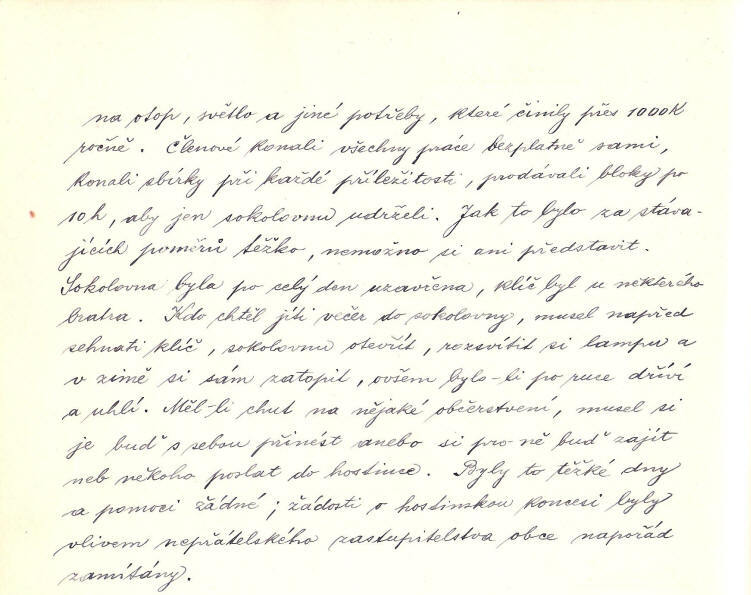 na otop, světlo a jiné potřeby, které činily přes 1000K
ročně. Členové konali všechny práce bezplatně sami,
konali sbírky při každé příležitosti, prodávali bloky po
10 h, aby jen sokolovnu udrželi. Jak to bylo za stáva-
jících poměrů těžko, nemožno si ani představit.
Sokolovna byla po celý den uzavřena, klíč byl u některého
bratra. Kdo chtěl jíti večer do sokolovny, musel napřed
sehnati klíč, sokolovnu otevřít, rozsvítit si lampu a
v zimě si sám zatopit, ovšem bylo-li po ruce dříví
a uhlí. Měl-li chut na nějaké občerstvení, musel si
je buď s sebou přinést anebo si pro ně buď zajít
neb někoho poslat do hostince. Byly to těžké dny
a pomoci žádné; žádosti o hostinskou koncesi byly
vlivem nepřátelského zastupitelstva obce napořád
zamítány.